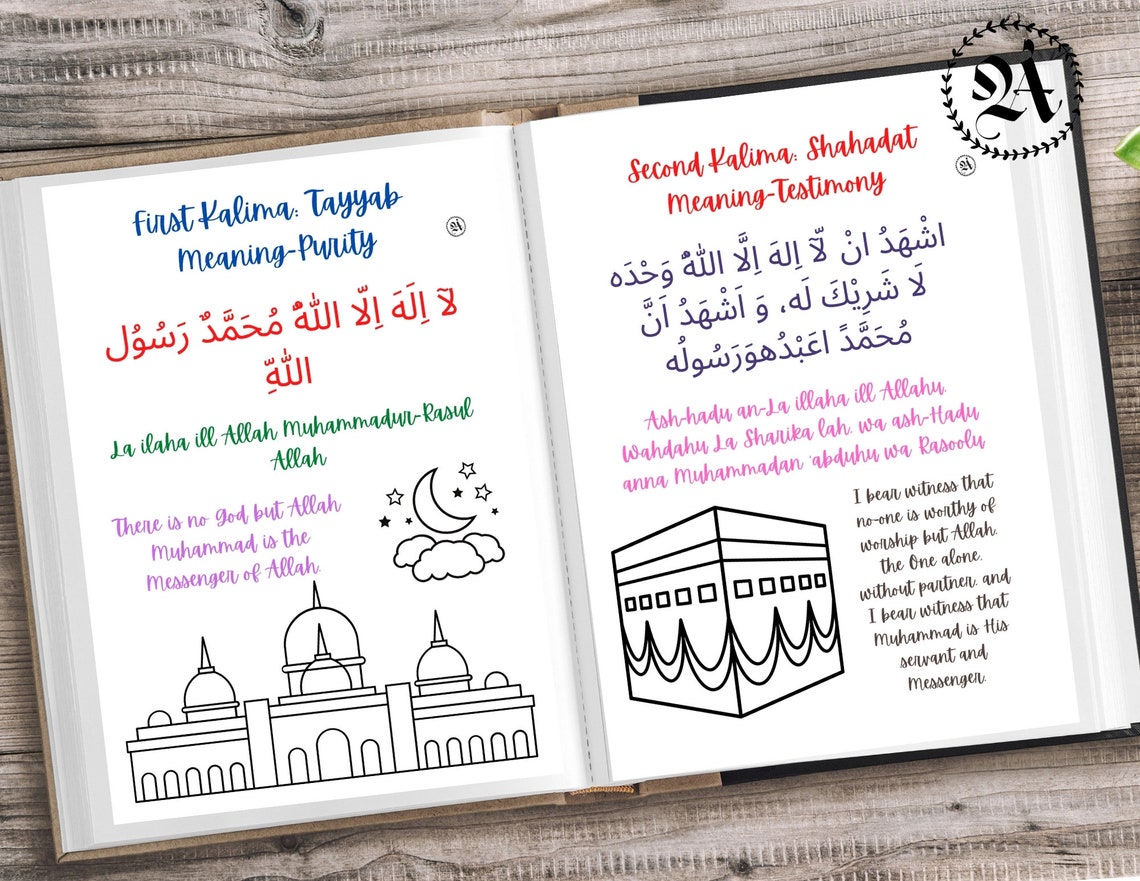 First Kalima: Tayyab
Meaning-Purity
لَآ اِلَهَ اِلّا اللهُ مُحَمَّدٌ رَسُوُل
اللهِّ
La ilaha ill Allah Muhammadur-Rasul
Allah
There is no God but Allah
Muhammad is the
Messenger of Allah.
Second Kalima: Shahadat
Meaning-Testimony
اشْهَدُ انْ لّآ اِلهَ اِلَّا اللهُ وَحْدَه
لَا شَرِيْكَ لَه، وَ اَشْهَدُ اَنَّ
مُحَمَّدً اعَبْدُهوَرَسُولُه
Ash-hadu an-La illaha ill Allahu.
Wahdahu La Sharika lah. wa ash-Hadu
anna Muhammadan 'abduhu wa Rasoolu
I bear witness that
no-one is worthy of
worship but Allah.
the One alone.
without partner. and
I bear witness that
Muhammad is His
servant and
Messenger.